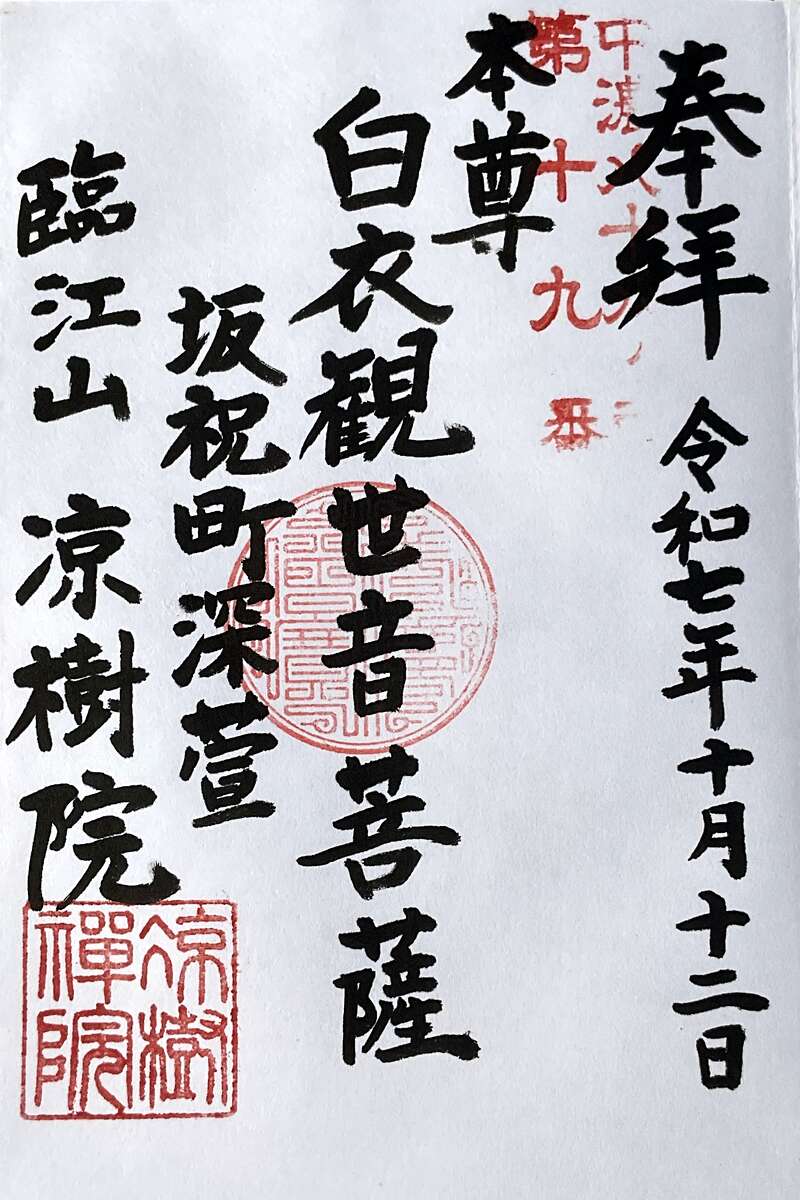 奉拝 令和七年十月十二日
第十九番
本尊
白衣観世音菩薩
坂祝町深萱
臨江山 凉樹院
凉樹
禅院